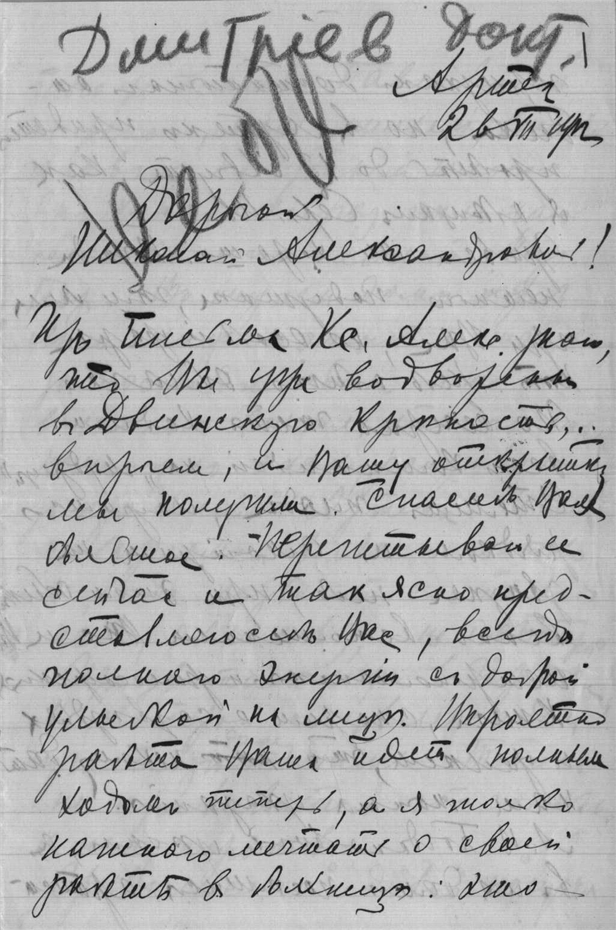 Дмитріев Докт.
Артек
Дорогой
Николай Александрович!
Изъ письма Кс. Алекс. знаю,
что Вы уже водворены
въ Двинскую крѣпость,..
впрочем, и Вашу открытку
мы получили. Спасибо Вам
большое. Перечитываю ее
сейчас и так ясно пред-
ставляю себѣ Вас, всегда
полного энергіи съ доброй
улыбкой на лицѣ. Вѣроятно
работа Ваша идет полным
ходомъ теперь, а я только
начинаю мечтать о своей
работѣ в больницѣ: это